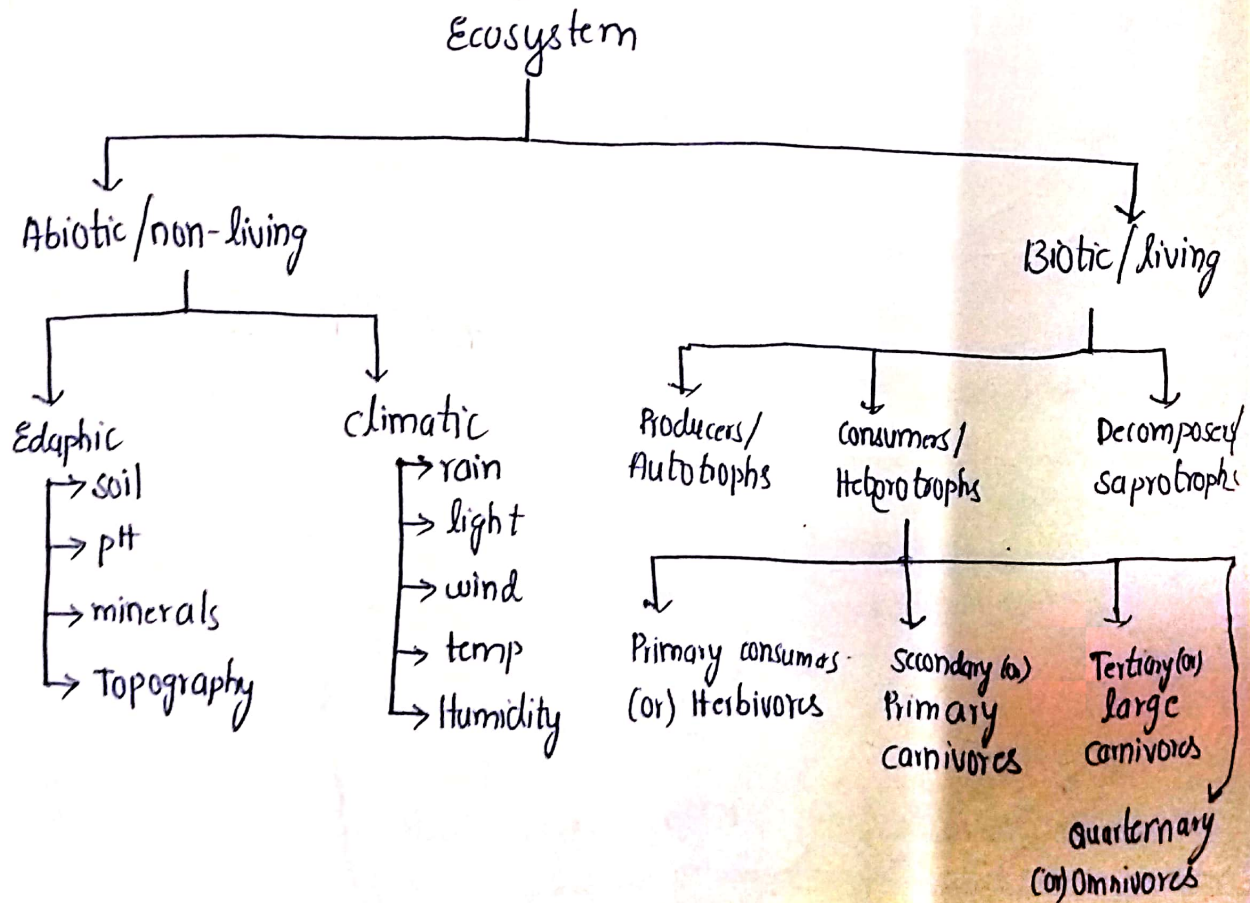 Ecosystem
Abiotic/non-living
Biotic/living
Edaphic
soil
pH
minerals
Topography
climatic
rain
light
wind
temp
Humidity
Producers/
Autotrophs
consumers/
Heterotrophs
Decomposers/
saprotrophs
Primary consumers
(or) Herbivores
Secondary (or)
Primary
carnivores
Tertiary (or)
large
carnivores
Quarternary
(or) Omnivores